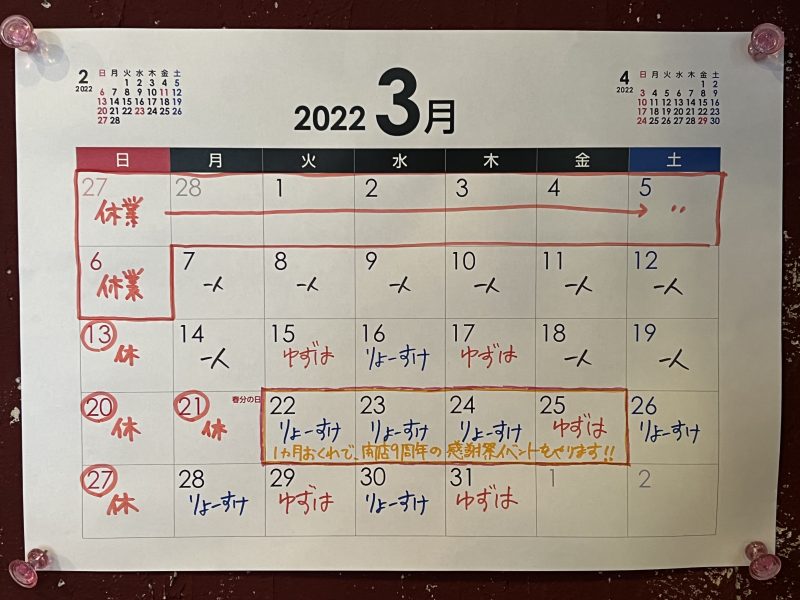 2
2022
日 月 火 水 木 金 土
1 2 3 4 5
6 7 8 9 10 11 12
13 14 15 16 17 18 19
20 21 22 23 24 25 26
27 28
2022 3月
4
2022
日 月 火 水 木 金 土
1 2
3 4 5 6 7 8 9
10 11 12 13 14 15 16
17 18 19 20 21 22 23
24 25 26 27 28 29 30
日 月 火 水 木 金 土
27 28 1 2 3 4 5
休業
6 7 8 9 10 11 12
休業 一人 一人 一人 一人 一人 一人
13 14 15 16 17 18 19
休 一人 ゆずは りょーすけ ゆずは 一人 一人
20 21 春分の日 22 23 24 25 26
休 休 りょーすけ りょーすけ りょーすけ ゆずは りょーすけ
1ヵ月おくれで、開店9周年の感謝祭イベントをやります!!
27 28 29 30 31 1 2
休 りょーすけ ゆずは りょーすけ ゆずは